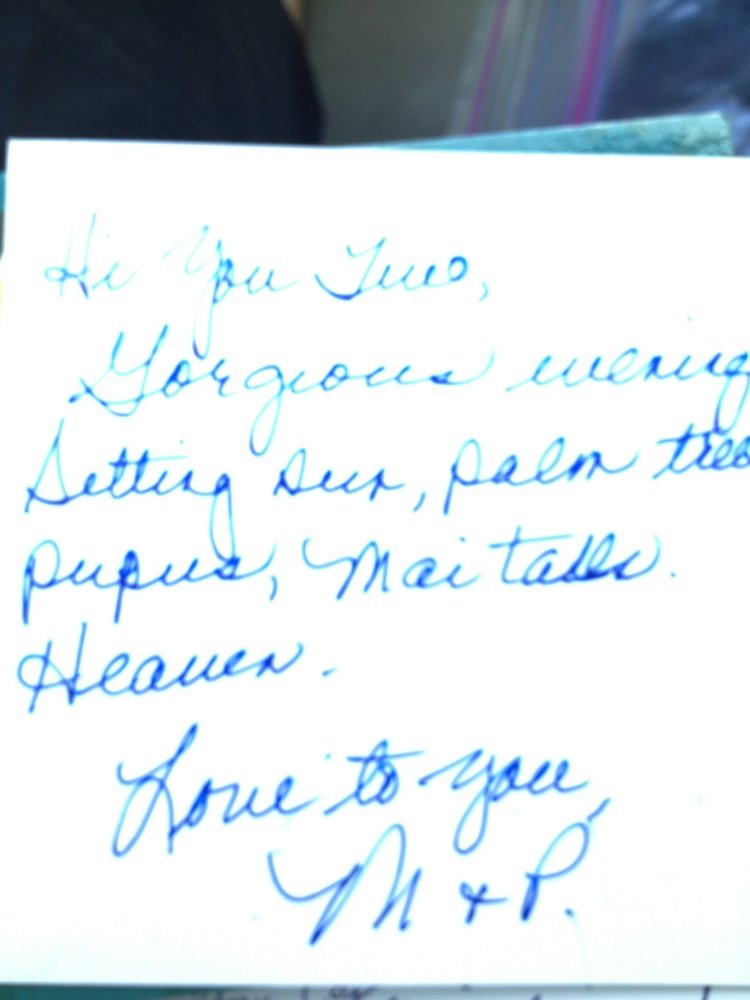 Hi You Two,
Gorgious evening
Setting sun, palm trees
pupus, Mai
Heaven.
Love to you,
M & P.